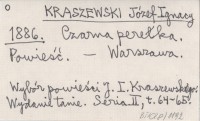 KRASZEWSKI Józef Ignacy
1886. Czarna perełka.
Powieść. - Warszawa.
Wybór powieści J. I. Kraszewskiego
Wydanie tanie. Seria II, t. 64-65.